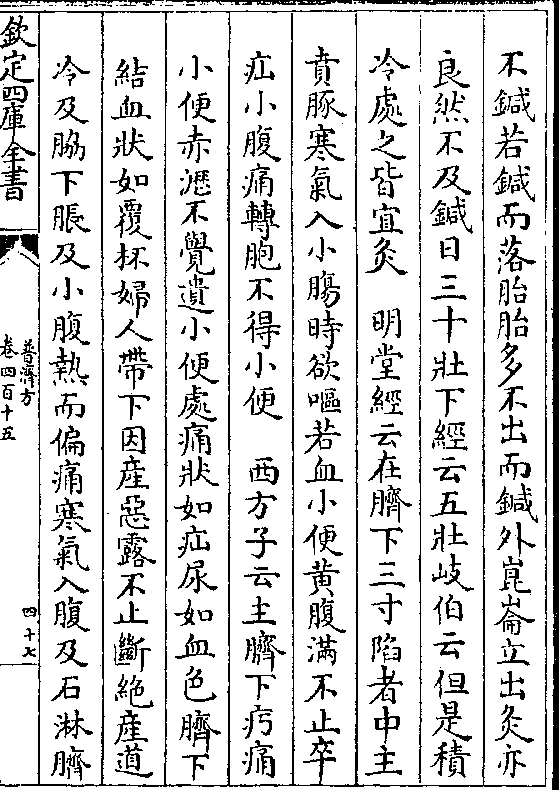 不鍼若鍼而落胎胎多不出而鍼外崑崙立出灸亦
良然不及鍼日三十壯下經云五壯岐伯云但是積
冷處之皆宜灸　明堂經云在臍下三寸陷者中主
賁豚寒氣入小腸時欲嘔若血小便黄腹滿不止卒
疝小腹痛轉胞不得小便　西方子云主臍下㽲痛
小便赤澀不覺遺小便處痛狀如疝尿如血色臍下
結血狀如覆杯婦人帶下因産惡露不止斷絶産道
冷及脇下脹及小腹熱而偏痛寒氣入腹及石淋臍
欽定四庫全書
普濟方
卷四百十五
四十七